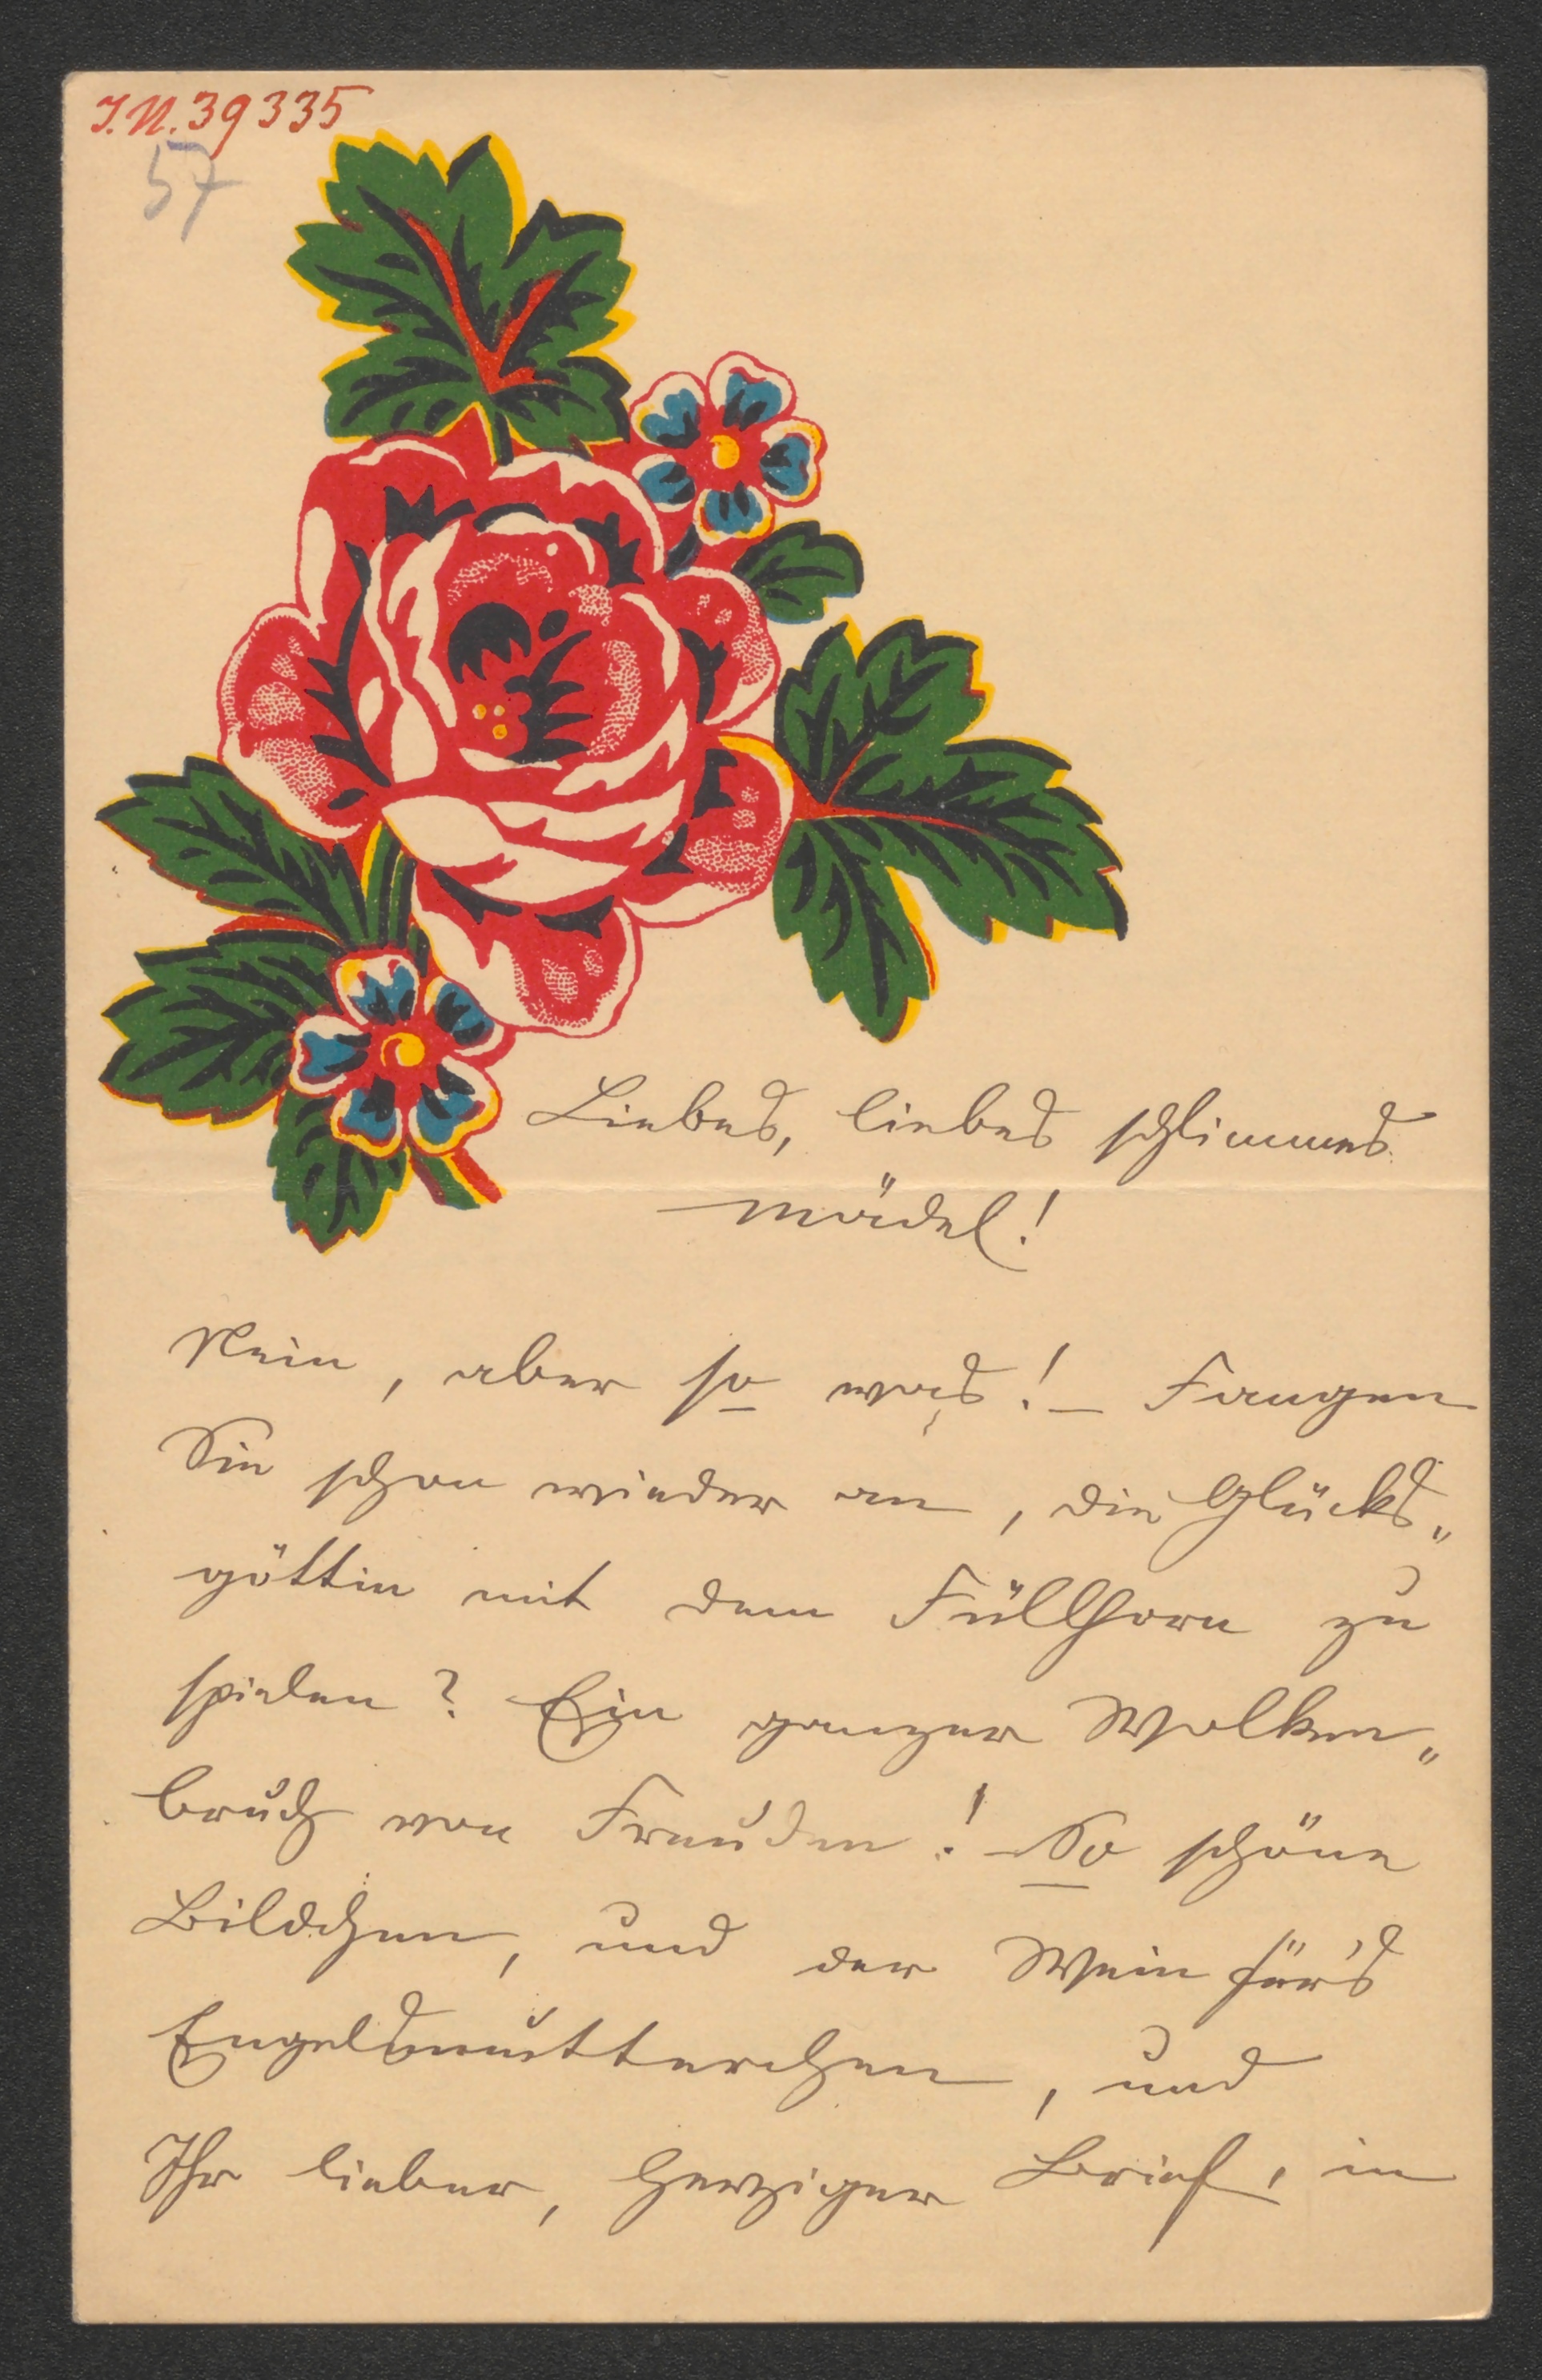 I.N. 39335
57
Liebes, liebes schlimmes
Mädel!
Nein, aber so was! – Fangen
Sie schon wieder an, die Glücks„
göttin mit dem Füllhorn zu
spielen? Ein ganzer Wolken„
bruch von Freuden! So schöne
Bildchen, und der Wein für's
Engelsmutterchen, und
Ihr lieber, herziger Brief, in